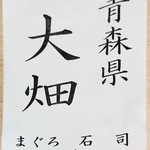 青森県
大畑
まぐろ 石 司